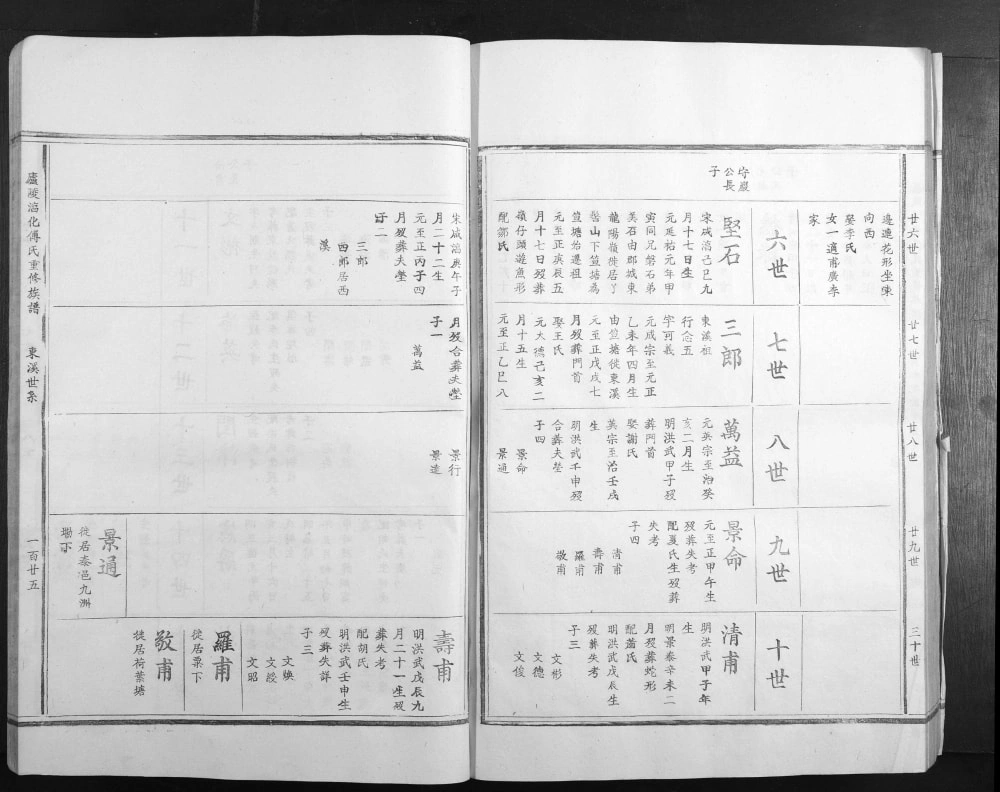 廿六世
廿七世
廿八世
廿九世
三十世
邊連花形坐東
向西
娶李氏
女一適甫廣李
家
六世
七世
八世
九世
十世
守嚴
公長
子
堅石
宋咸淳己巳九
月十七日生
元延祐元年甲
寅同兄磐石弟
美石由郎城東
龍陽嶺徙居了
嵒山下笪塘為
笪塘始遷祖
元至正庚辰五
月十七日歿葬
嶺仔頭遊魚形
配鄒氏
宋咸淳庚午子
月二十二生
元至正丙子四
月歿葬夫塋
子二
三郎
四郎居西
溪
三郎
東溪祖
行念五
字可義
元成宗至元正
乙未年四月生
由笪塘徙東溪
元至正戊戌七
月歿葬門首
娶王氏
元大德己亥二
月十五生
元至正乙巳八
月歿合葬夫塋
子一
萬益
萬益
元英宗至治癸
亥二月生
明洪武甲子歿
葬門首
娶謝氏
英宗至治壬戌
生
明洪武壬申歿
合葬夫塋
子四
景命
景通
景行
景遠
景命
元至正甲午生
歿葬失考
配夏氏生歿葬
失考
子四
清甫
壽甫
羅甫
敬甫
景通
徙居泰邑九洲
塅下
清甫
明洪武甲子年
生
明景泰辛未二
月歿葬蛇形
配蕭氏
明洪武戊辰生
歿葬失考
子三
文彬
文德
文俊
壽甫
明洪武戊辰九
月二十一生歿
葬失考
配胡氏
明洪武壬申生
歿葬失詳
子三
文煥
文綬
文昭
羅甫
徙居票下
敬甫
徙居荷葉塘
廬陵淊化傅氏重修族譜
東溪世系
一百廿五